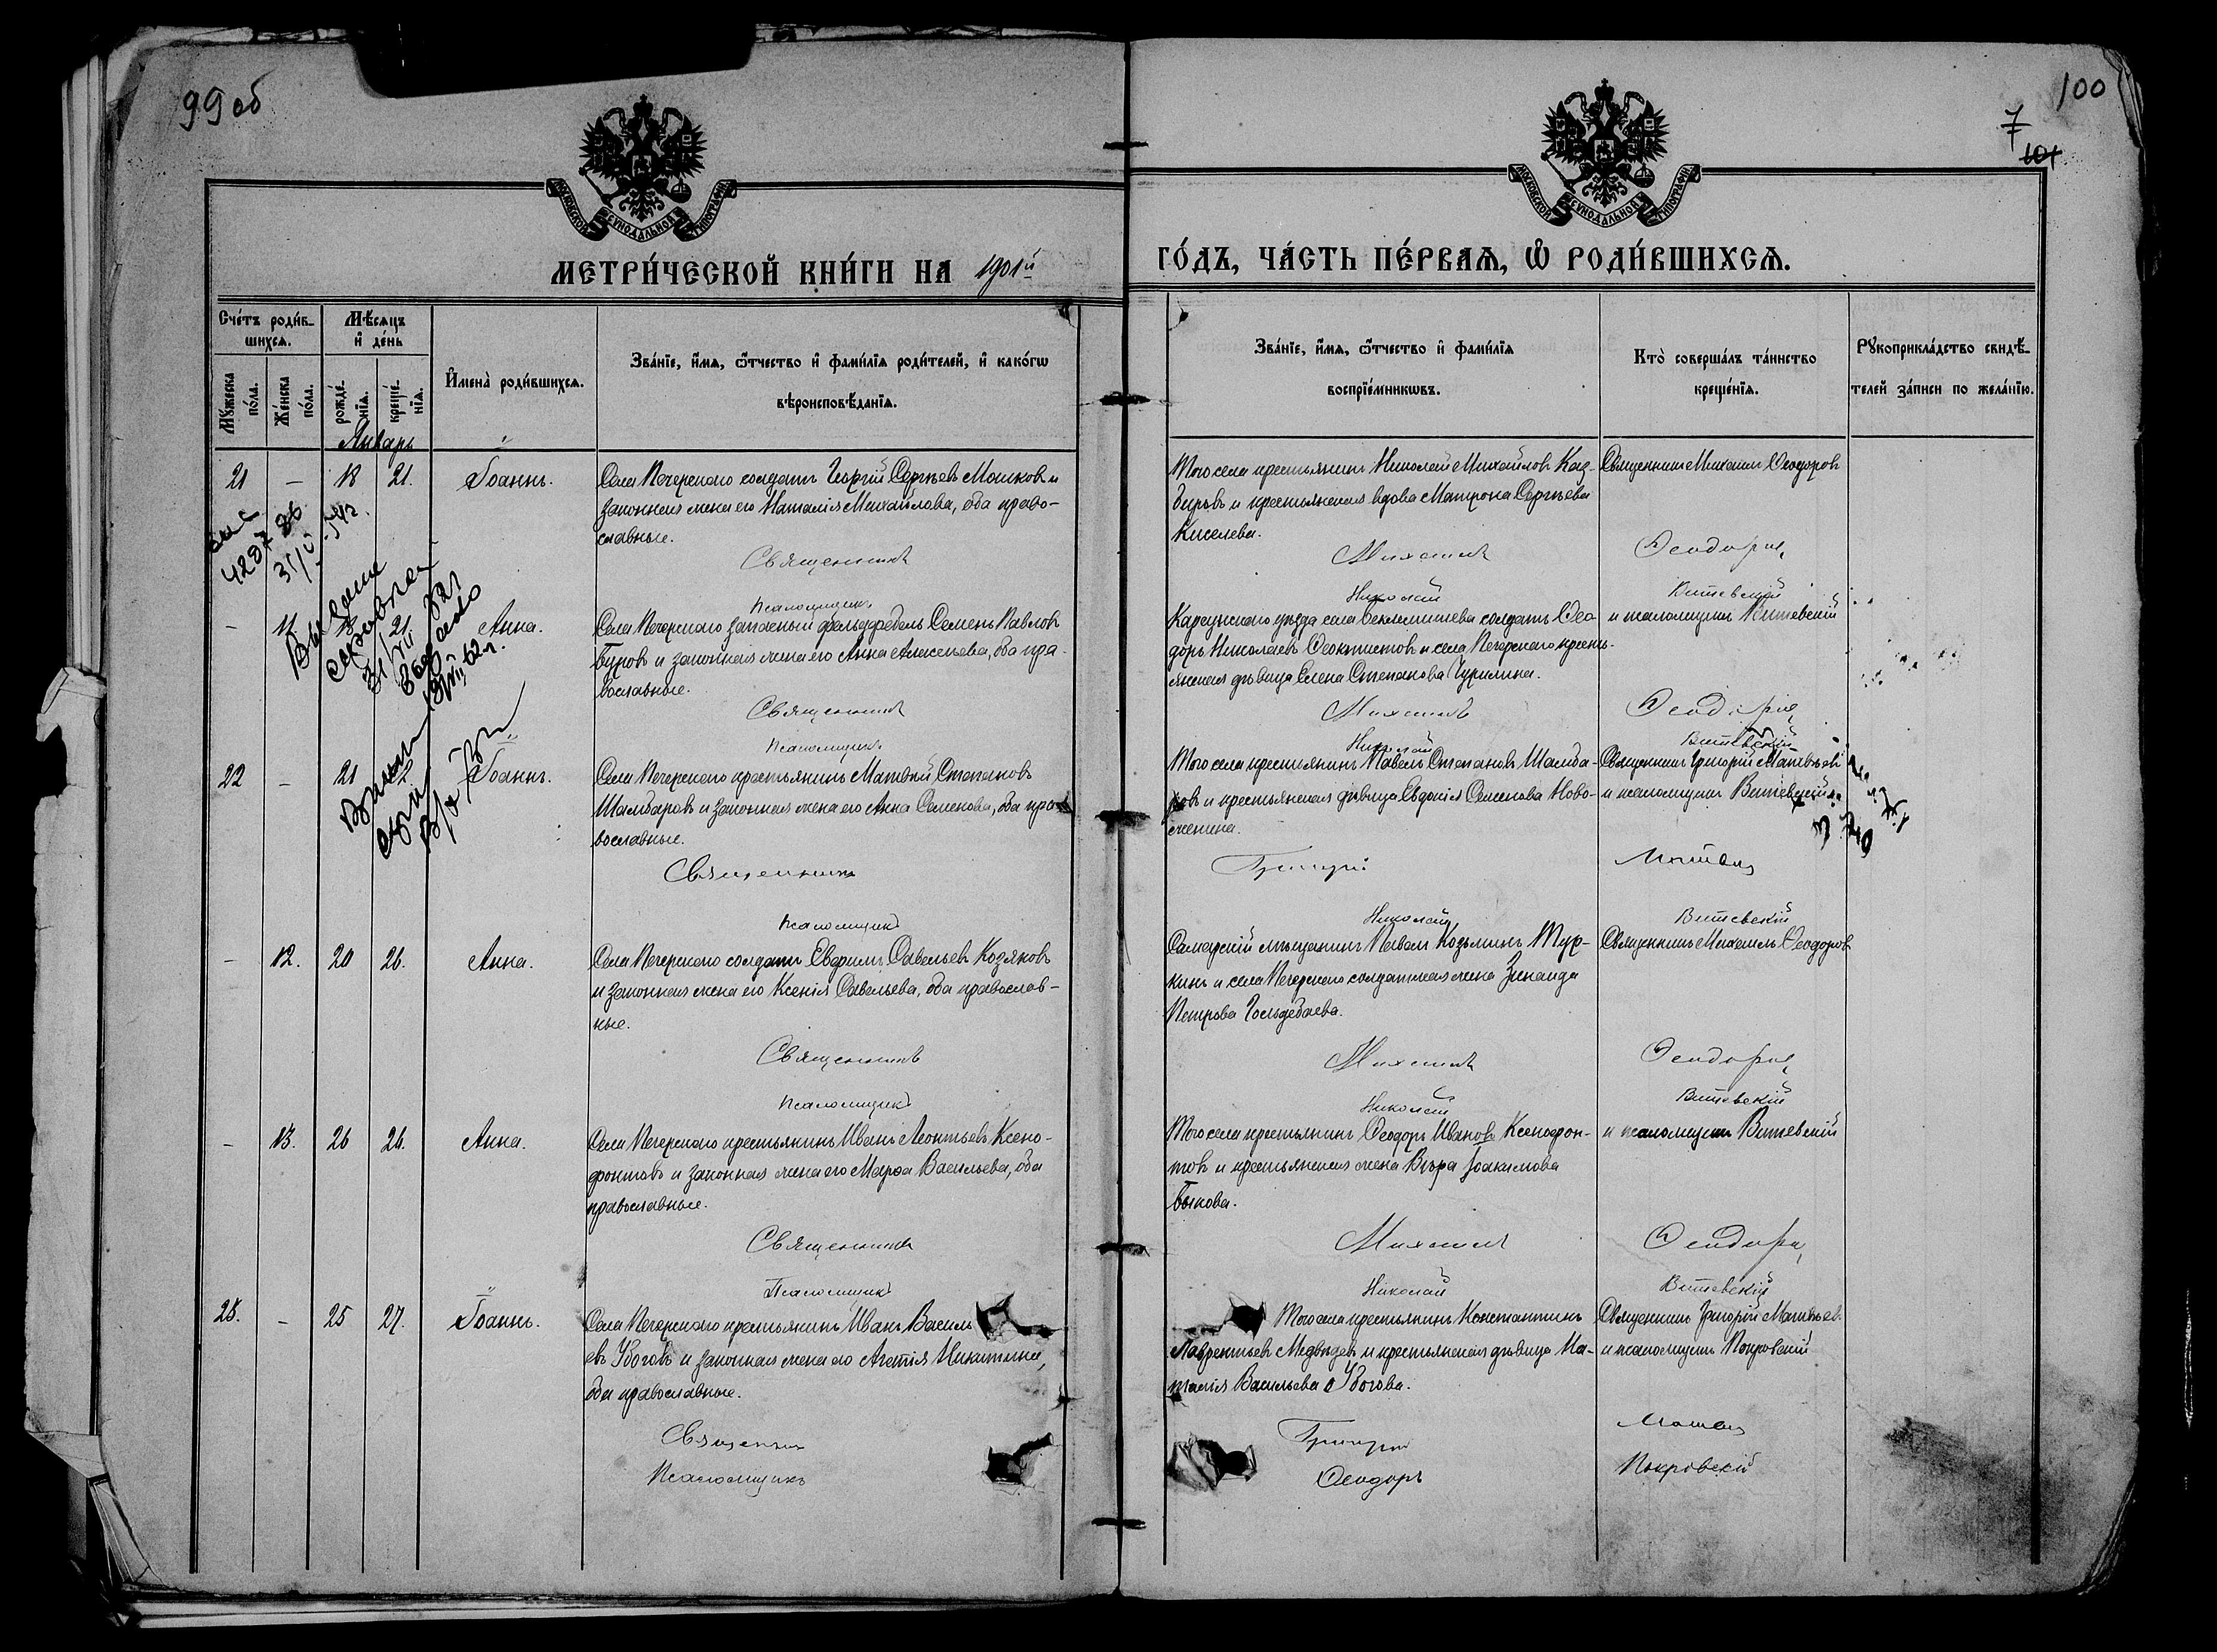 99 об
100
7
101
МОСКОВСКОЙ СУНОДАЛЬНОЙ ТИПОГРАФІИ
МОСКОВСКОЙ СУНОДАЛЬНОЙ ТИПОГРАФІИ
МЕТРИ́ЧЕСКОЙ КНИ́ГИ НА 1901й
ГО́ДЪ, ЧА́СТЬ ПЕ́РВАѦ, Ѽ РОДИ́ВШИХСѦ.
Сче́тъ роди́в-
шихсѧ.
Мѣ́сѧцъ
и҆ де́нь
Мꙋ́жеска
по́ла.
Же́нска
по́ла.
рожде́-
нїѧ.
креще́-
нїѧ.
И҆мена̀ роди́вшихсѧ.
Зва́нїе, и҆́мѧ, ѻ҆́тчество и҆ фами́лїѧ роди́телей, и҆ како́гѡ
вѣроисповѣ́данїѧ.
Зва́нїе, и҆́мѧ, ѻ҆́тчество и҆ фами́лїѧ
воспрїе́мникѡвъ.
Кто̀ соверша́лъ та́инство
креще́нїѧ.
Рꙋкоприкла́дство свидѣ́-
телей за́писи по жела́нїю.
Январь
21 – 18 21. Іоаннъ.
Села Печерскаго солдатъ Георгій Сергѣевъ Мошковъ и
законная жена его Наталія Михайлова, оба право-
славные.
Священникъ
Псаломщикъ
Того села крестьянинъ Николай Михайловъ
и крестьянская вдова Матрона Сергѣева
Киселева.
Михаилъ
Николай
Священникъ Михаилъ Ѳеодоров
Ѳеодоров
Витевскій
– 11 18 21. Анна.
Села Печерскаго запасный фельдфебель Семенъ Павловъ
Буровъ и законная жена его Анна Алексѣева, оба пра-
вославные.
Священникъ
Псаломщикъ
Карсунскаго уѣзда села Беклемишева солдатъ Ѳео-
доръ Николаевъ Ѳеоктистовъ и села Печерскаго кресть-
янская дѣвица Елена Степанова Чурилина.
Михаилъ
Николай
и псаломщикъ Витевскій
Ѳеодоров
Витевскій
22 – 21 Іоаннъ.
Села Печерскаго крестьянинъ Матвѣй Степановъ
Шамбаровъ и законная жена его Анна Семенова, оба пра-
вославные.
Священникъ
Псаломщикъ
Того села крестьянинъ Павелъ Степановъ Шамба-
ровъ и крестьянская дѣвица Евдокія Семенова Ново-
женина.
Григорій
Николай
Священникъ Григорій Матвѣевъ
и псаломщикъ Витевскій
Матвѣев
Витевскій
– 12. 20 26. Анна.
Села Печерскаго солдатъ Евфимъ Савельевъ Козяковъ
и законная жена его Ксенія Савельева, оба православ-
ные.
Священникъ
Псаломщикъ
Самарскій мѣщанинъ Павелъ Козьминъ Тур-
кинъ и села Печерскаго солдатская жена Зинаида
Петрова Гольдебаева.
Михаилъ
Николай
Священникъ Михаилъ Ѳеодоров
Ѳеодоров
Витевскій
– 13. 26 26. Анна.
Села Печерскаго крестьянинъ Иванъ Леонтьевъ Ксено-
фонтовъ и законная жена его Марѳа Васильева, оба
православные.
Священникъ
Псаломщикъ
Того села крестьянинъ Ѳеодоръ Ивановъ Ксенофон-
товъ и крестьянская жена Вѣра Іоакимова
Быкова.
Михаилъ
Николай
и псаломщикъ Витевскій
Ѳеодоров
Витевскій
23. – 25 27. Іоаннъ.
Села Печерскаго крестьянинъ Иванъ Василь
евъ Убоговъ и законная жена его Агнія Никитина,
оба православные.
Священникъ
Псаломщикъ
Того села крестьянинъ Константинъ
Лаврентьевъ Медвѣдевъ и крестьянская дѣвица На-
талія Васильева Убогова.
Григорій
Ѳеодоръ
Священникъ Григорій Матвѣев
и псаломщикъ Покровскій
Матвѣев
Покровскій